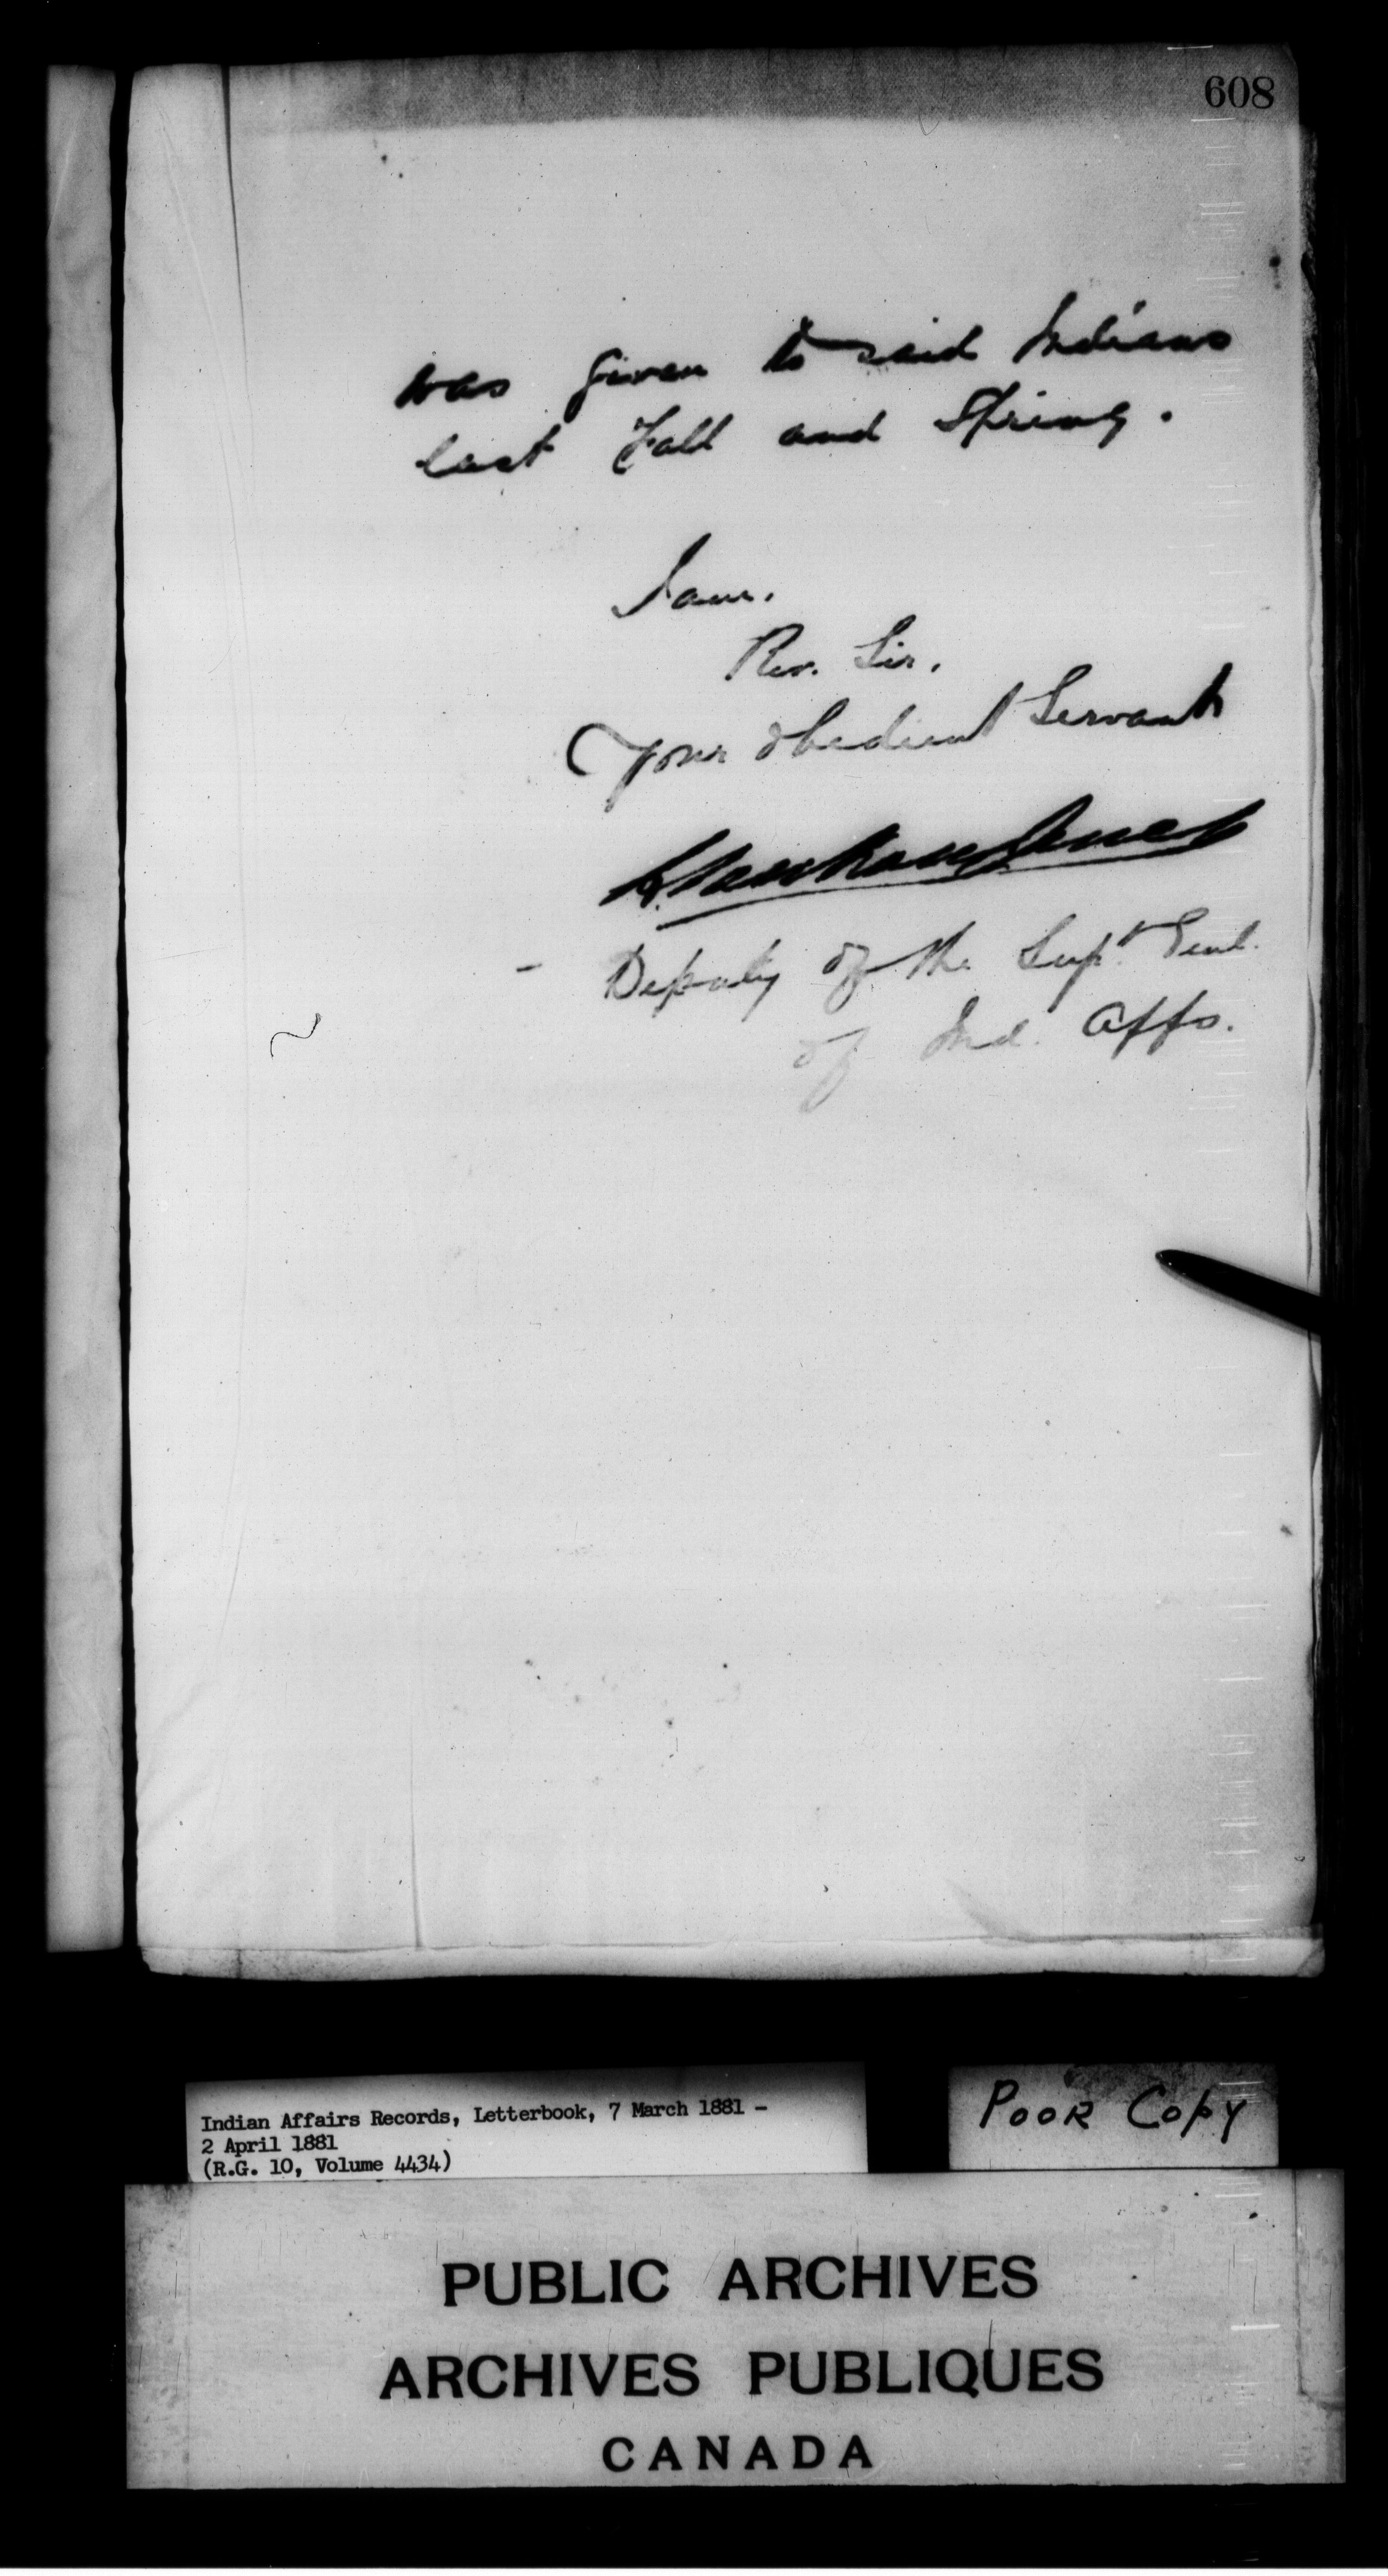 608
was given to said Indians
last Fall and Spring.
I am.
Rev. Sir.
Your obedient Servant
L Vankoughnet
Deputy of the Supt. Genl.
of Ind. Affs.
Indian Affairs Records, Letterbook, 7 March 1881 -
2 April 1881
(R.G. 10, Volume 4434)
POOR COPY
PUBLIC ARCHIVES
ARCHIVES PUBLIQUES
CANADA